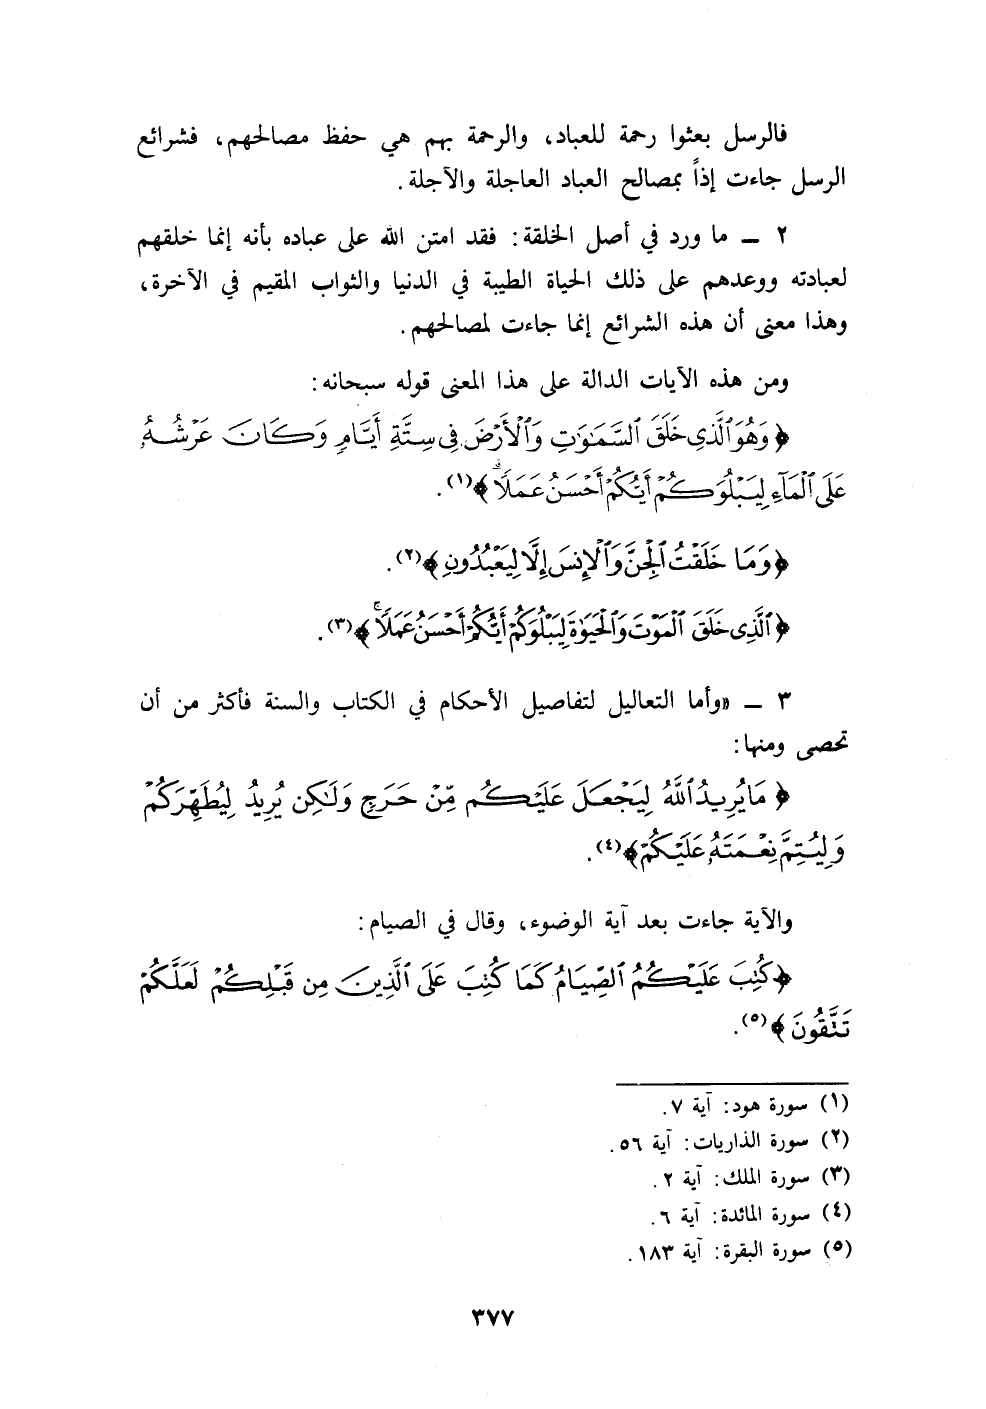 فالرسل بعثوا رحمة للعباد، والرحمة بهم هي حفظ مصالحهم، فشرائع
الرسل جاءت إذاً بمصالح العباد العاجلة والآجلة.
٢ ـ ما ورد في أصل الخلقة: فقد امتن الله على عباده بأنه إنما خلقهم
لعبادته ووعدهم على ذلك الحياة الطيبة في الدنيا والثواب المقيم في الآخرة،
وهذا معنى أن هذه الشرائع إنما جاءت لمصالحهم.
ومن هذه الآيات الدالة على هذا المعنى قوله سبحانه:
﴿وَهُوَ ٱلَّذِى خَلَقَ ٱلسَّمَٰوَٰتِ وَٱلْأَرْضَ فِى سِتَّةِ أَيَّامٍ وَكَانَ عَرْشُهُۥ
عَلَى ٱلْمَآءِ لِيَبْلُوَكُمْ أَيُّكُمْ أَحْسَنُ عَمَلًا ۗ﴾(١).
﴿وَمَا خَلَقْتُ ٱلْجِنَّ وَٱلْإِنسَ إِلَّا لِيَعْبُدُونِ﴾(٢).
﴿ٱلَّذِى خَلَقَ ٱلْمَوْتَ وَٱلْحَيَوٰةَ لِيَبْلُوَكُمْ أَيُّكُمْ أَحْسَنُ عَمَلًا ۚ﴾(٣).
٣ ـ «وأما التعاليل لتفاصيل الأحكام في الكتاب والسنة فأكثر من أن
تحصى ومنها:
﴿مَا يُرِيدُ ٱللَّهُ لِيَجْعَلَ عَلَيْكُم مِّنْ حَرَجٍ وَلَٰكِن يُرِيدُ لِيُطَهِّرَكُمْ
وَلِيُتِمَّ نِعْمَتَهُۥ عَلَيْكُمْ﴾(٤).
والآية جاءت بعد آية الوضوء، وقال في الصيام:
﴿كُتِبَ عَلَيْكُمُ ٱلصِّيَامُ كَمَا كُتِبَ عَلَى ٱلَّذِينَ مِن قَبْلِكُمْ لَعَلَّكُمْ
تَتَّقُونَ﴾(٥).
(١) سورة هود: آية ٧.
(٢) سورة الذاريات: آية ٥٦.
(٣) سورة الملك: آية ٢.
(٤) سورة المائدة: آية ٦.
(٥) سورة البقرة: آية ١٨٣.
٣٧٧